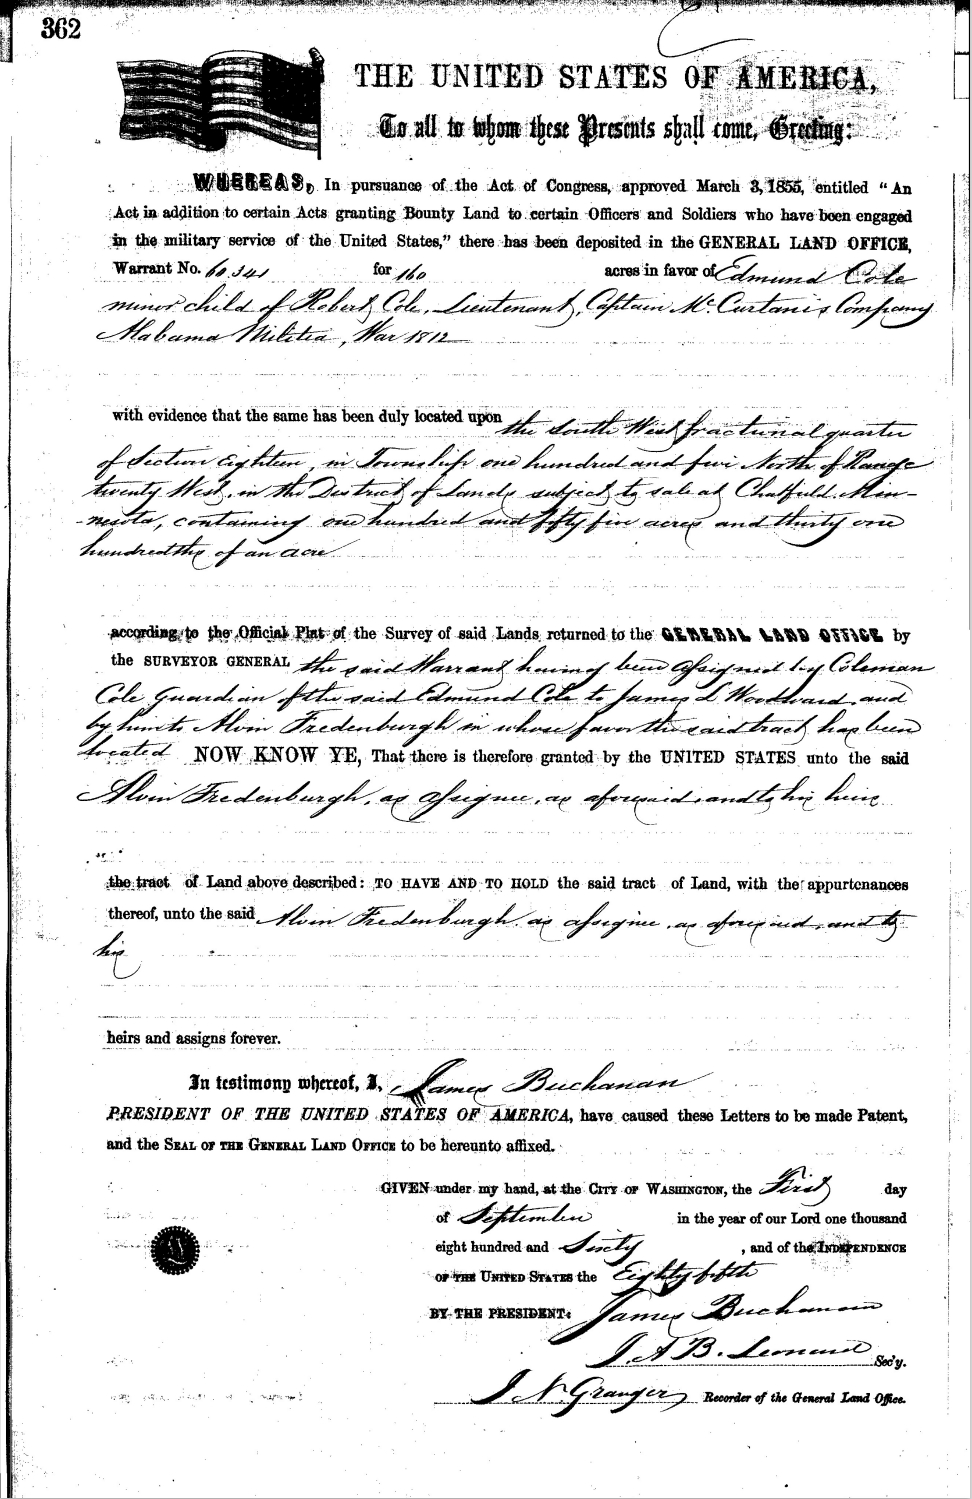 362
THE UNITED STATES OF AMERICA,
To all to whom these Presents shall come, Greeting:
WHEREAS, In pursuance of the Act of Congress, approved March 3, 1855, entitled "An
Act in addition to certain Acts granting Bounty Land to certain Officers and Soldiers who have been engaged
in the military service of the United States," there has been deposited in the GENERAL LAND OFFICE,
Warrant No. 60.341 for 160 acres in favor of Edmund Cole
minor child of Robert Cole, Lieutenant, Captain Mc Curtani's Company
Alabama Militia, War 1812
with evidence that the same has been duly located upon the South West fractional quarter
of Section Eighteen, in Township one hundred and five North of Range
twenty West, in the District of Lands subject to sale at Chatfield Min-
-nesota, containing one hundred and fifty five acres and thirty one
hundredths of an acre
according to the Official Plat of the Survey of said Lands returned to the GENERAL LAND OFFICE by
the SURVEYOR GENERAL the said Warrant having been assigned by Coleman
Cole Guardian of the said Edmund Cole to James L Woodward and
by him to Alvin Fredenburgh in whose favor the said tract has been
located NOW KNOW YE, That there is therefore granted by the UNITED STATES unto the said
Alvin Fredenburgh, as assignee, as aforesaid, and to his heirs
the tract of Land above described: TO HAVE AND TO HOLD the said tract of Land, with the appurtenances
thereof, unto the said Alvin Fredenburgh, as assignee, as aforesaid, and to
his
heirs and assigns forever.
In testimony whereof, I, James Buchanan
PRESIDENT OF THE UNITED STATES OF AMERICA, have caused these Letters to be made Patent,
and the SEAL OF THE GENERAL LAND OFFICE to be hereunto affixed.
GIVEN under my hand, at the CITY OF WASHINGTON, the First day
of September in the year of our Lord one thousand
eight hundred and Sixty, and of the INDEPENDENCE
OF THE UNITED STATES the Eighty fifth
BY THE PRESIDENT: James Buchanan
J. A B. Leonard Sec'y.
J N Granger Recorder of the General Land Office.